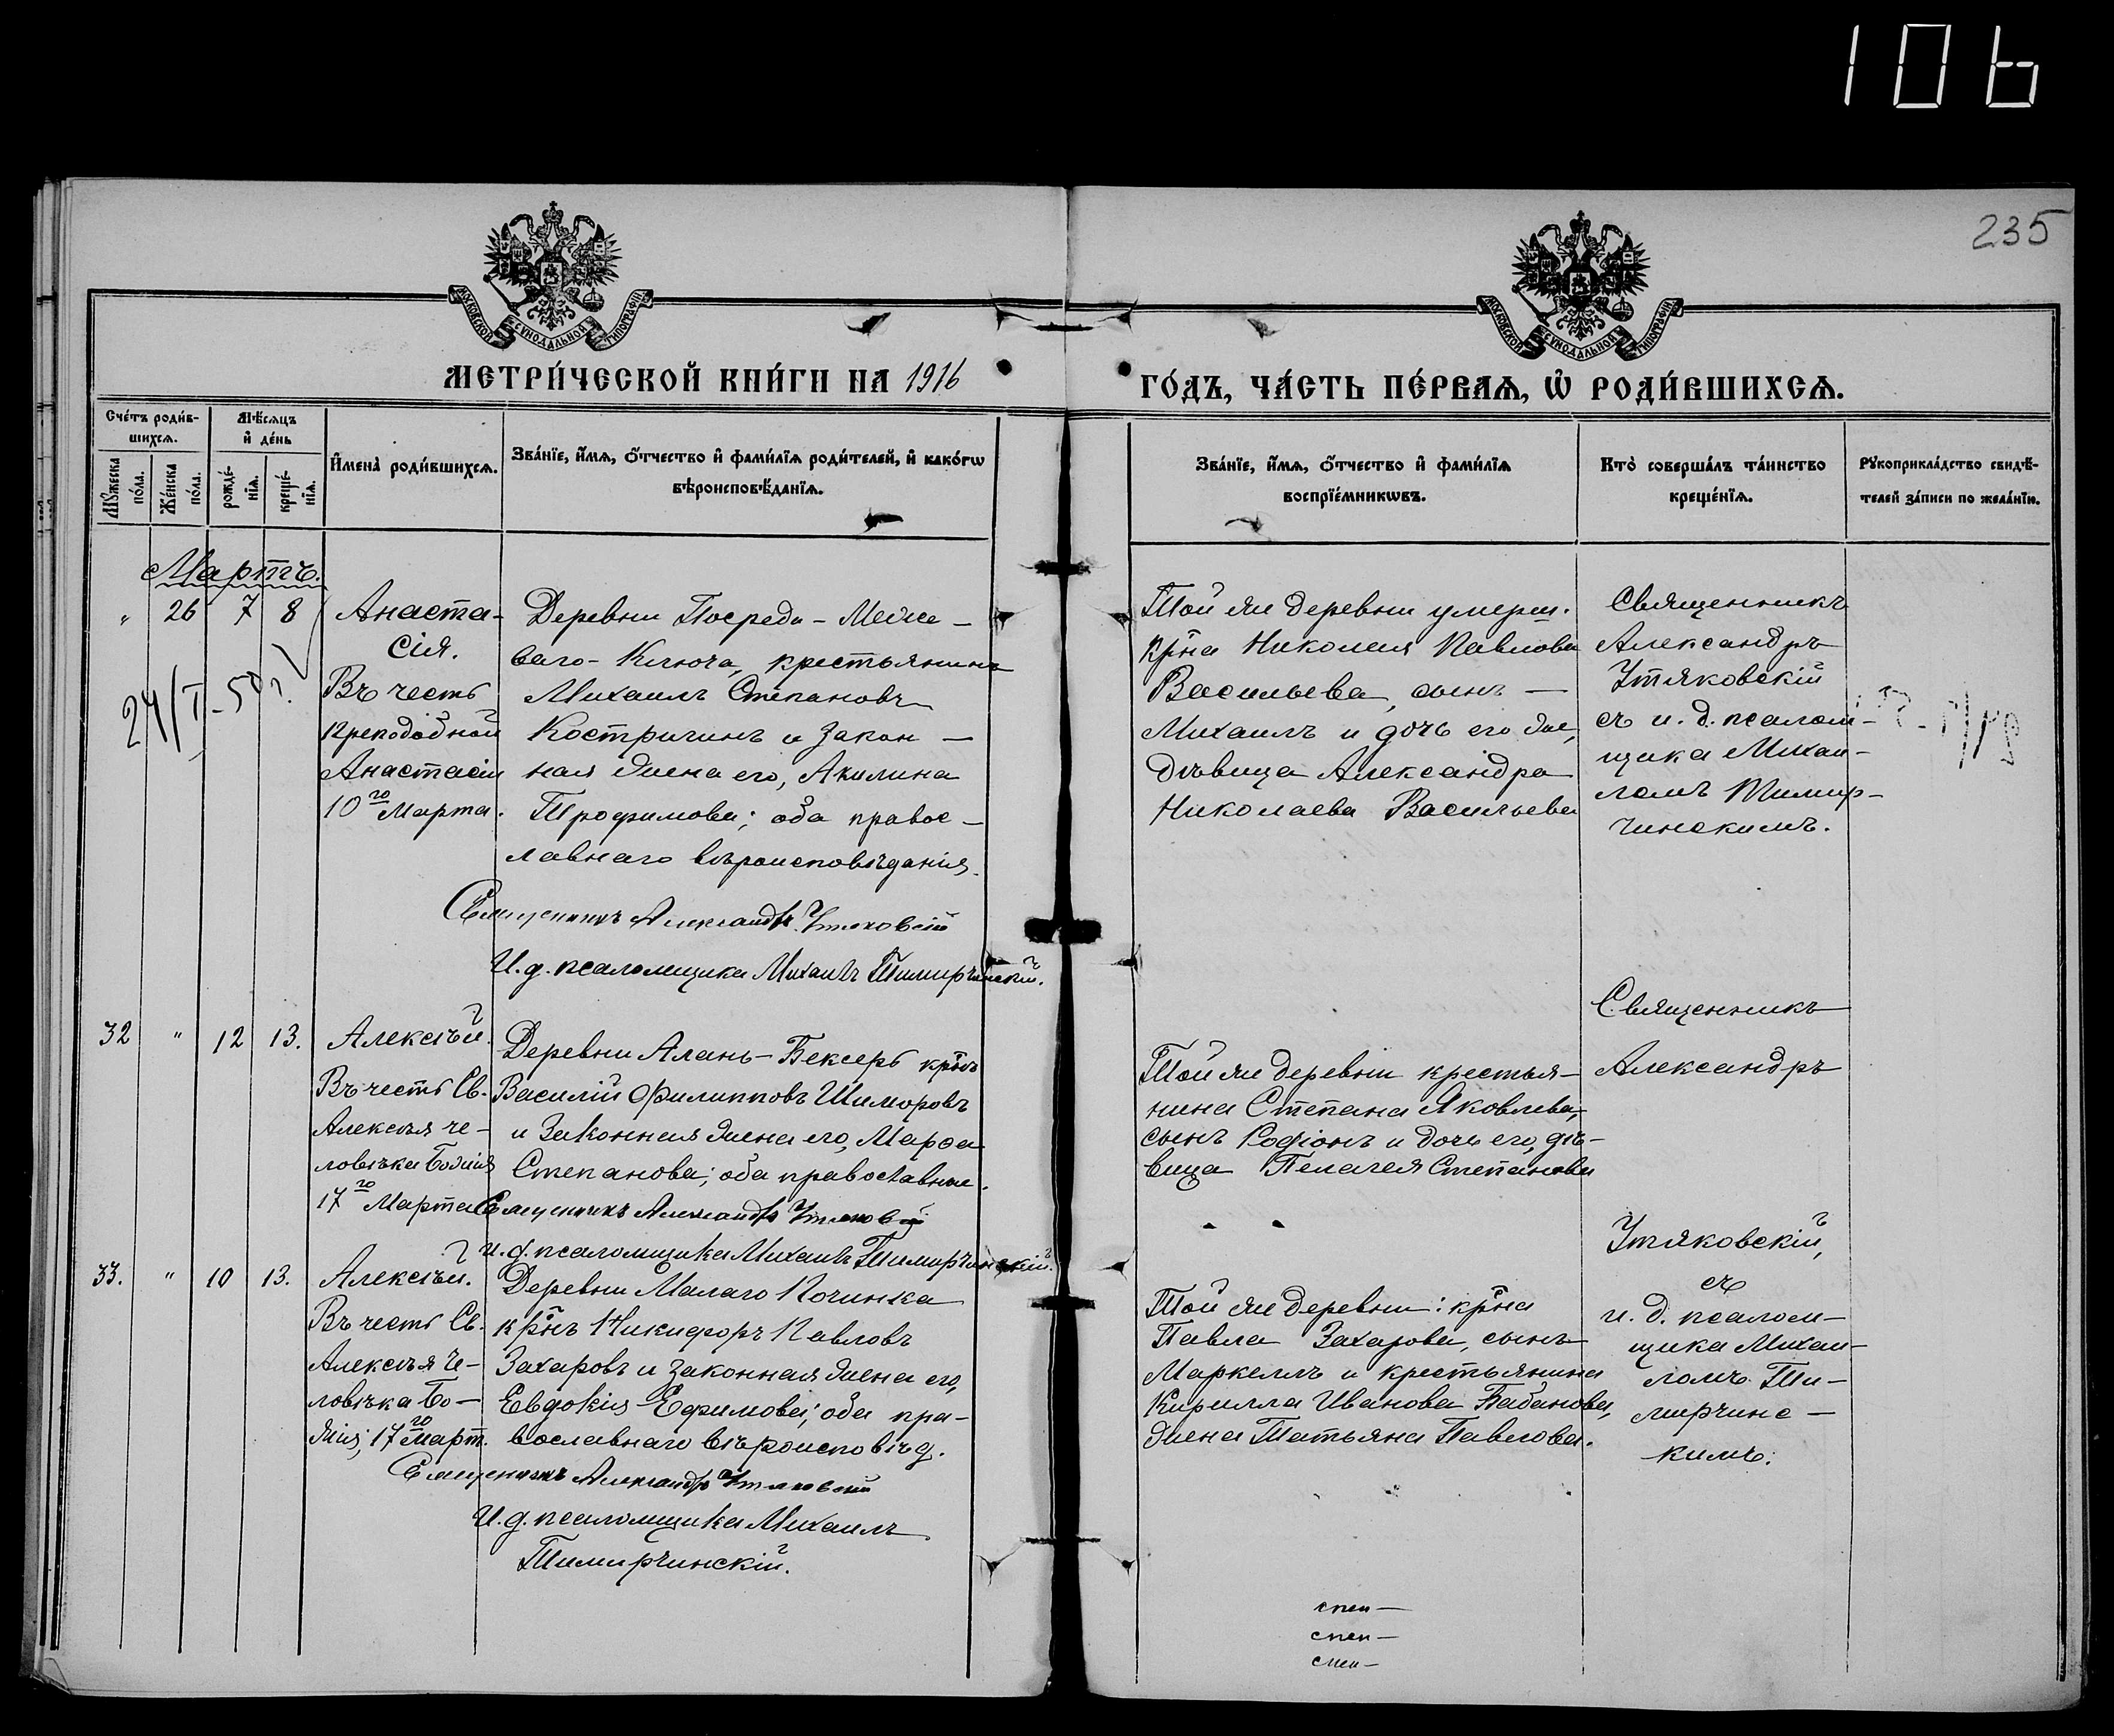 106
235
МОСКОВСКОЙ СѴНОДАЛЬНОЙ ТИПОГРАФІИ
МОСКОВСКОЙ СѴНОДАЛЬНОЙ ТИПОГРАФІИ
МЕТРИ́ЧЕСКОЙ КНИ́ГИ НА 1916
ГО́ДЪ, ЧА́СТЬ ПЕ́РВАѦ, Ѽ РОДИ́ВШИХСѦ.
Сче́тъ роди́в-
шихсѧ.
Мꙋ́жеска
по́ла.
Же́нска
по́ла.
Мѣ́сѧцъ
и҆ де́нь
рожде́-
нїѧ.
креще́-
нїѧ.
И҆мена̀ роди́вшихсѧ.
Зва́нїе, и҆́мѧ, ѻ҆́тчество и҆ фами́лїѧ роди́телей, и҆ како́гѡ
вѣроисповѣ́данїѧ.
Зва́нїе, и҆́мѧ, ѻ҆́тчество и҆ фами́лїѧ
воспрїе́мникѡвъ.
Кто̀ соверша́лъ та́инство
креще́нїѧ.
Рꙋкоприкла́дство свидѣ́-
телей за́писи по жела́нїю.
Мартъ.
" 26 7 8
24/I-50 г.
Анаста-
сія.
Въ честь
преподобной
Анастасіи
10го Марта.
Деревни Посреда-Медже-
ваго-Ключа, крестьянинъ
Михаилъ Степановъ
Костригинъ и закон-
ная жена его, Акилина
Трофимова; оба правос-
лавнаго вѣроисповѣданія.
Священникъ Александръ Утяковскій
И.д. псаломщика Михаилъ Тимирчинскій.
Той же деревни умерш.
кр̃на Николая Павлова
Васильева, сынъ —
Михаилъ и дочь его же,
дѣвица Александра
Николаева Васильева
Священникъ
Александръ
Утяковскій
съ и.д. псалом-
щика Михаи-
ломъ Тимир-
чинскимъ.
32 " 12 13.
Алексѣй.
Въ честь Св.
Алексѣя че-
ловѣка Божія
17го Марта
Деревни Алань-Бексерь кр̃нъ
Василій Филипповъ Шиморовъ
и законная жена его, Марѳа
Степанова; оба православные.
Священникъ Александръ Утяковскій
И.д. псаломщика Михаилъ Тимирчинскій.
Той же деревни крестья-
нина Степана Яковлева,
сынъ Родіонъ и дочь его, дѣ-
вица Пелагея Степанова
Священникъ
Александръ
Утяковскій,
съ
и.д. псалом-
щика Михаи-
ломъ Ти-
мирчинс-
кимъ.
33. " 10 13.
Алексѣй.
Въ честь Св.
Алексѣя Че-
ловѣка Бо-
жія; 17го Март.
Деревни Малаго Починка
кр̃нъ Никифоръ Павловъ
Захаровъ и законная жена его,
Евдокія Ефимова; оба пра-
вославнаго вѣроисповѣд.
Священникъ Александръ Утяковскій
И.д. псаломщика Михаилъ
Тимирчинскій.
Той же деревни: кр̃на
Павла Захарова, сынъ
Маркеллъ и крестьянина
Кирилла Иванова Бабанова,
жена Татьяна Павлова.